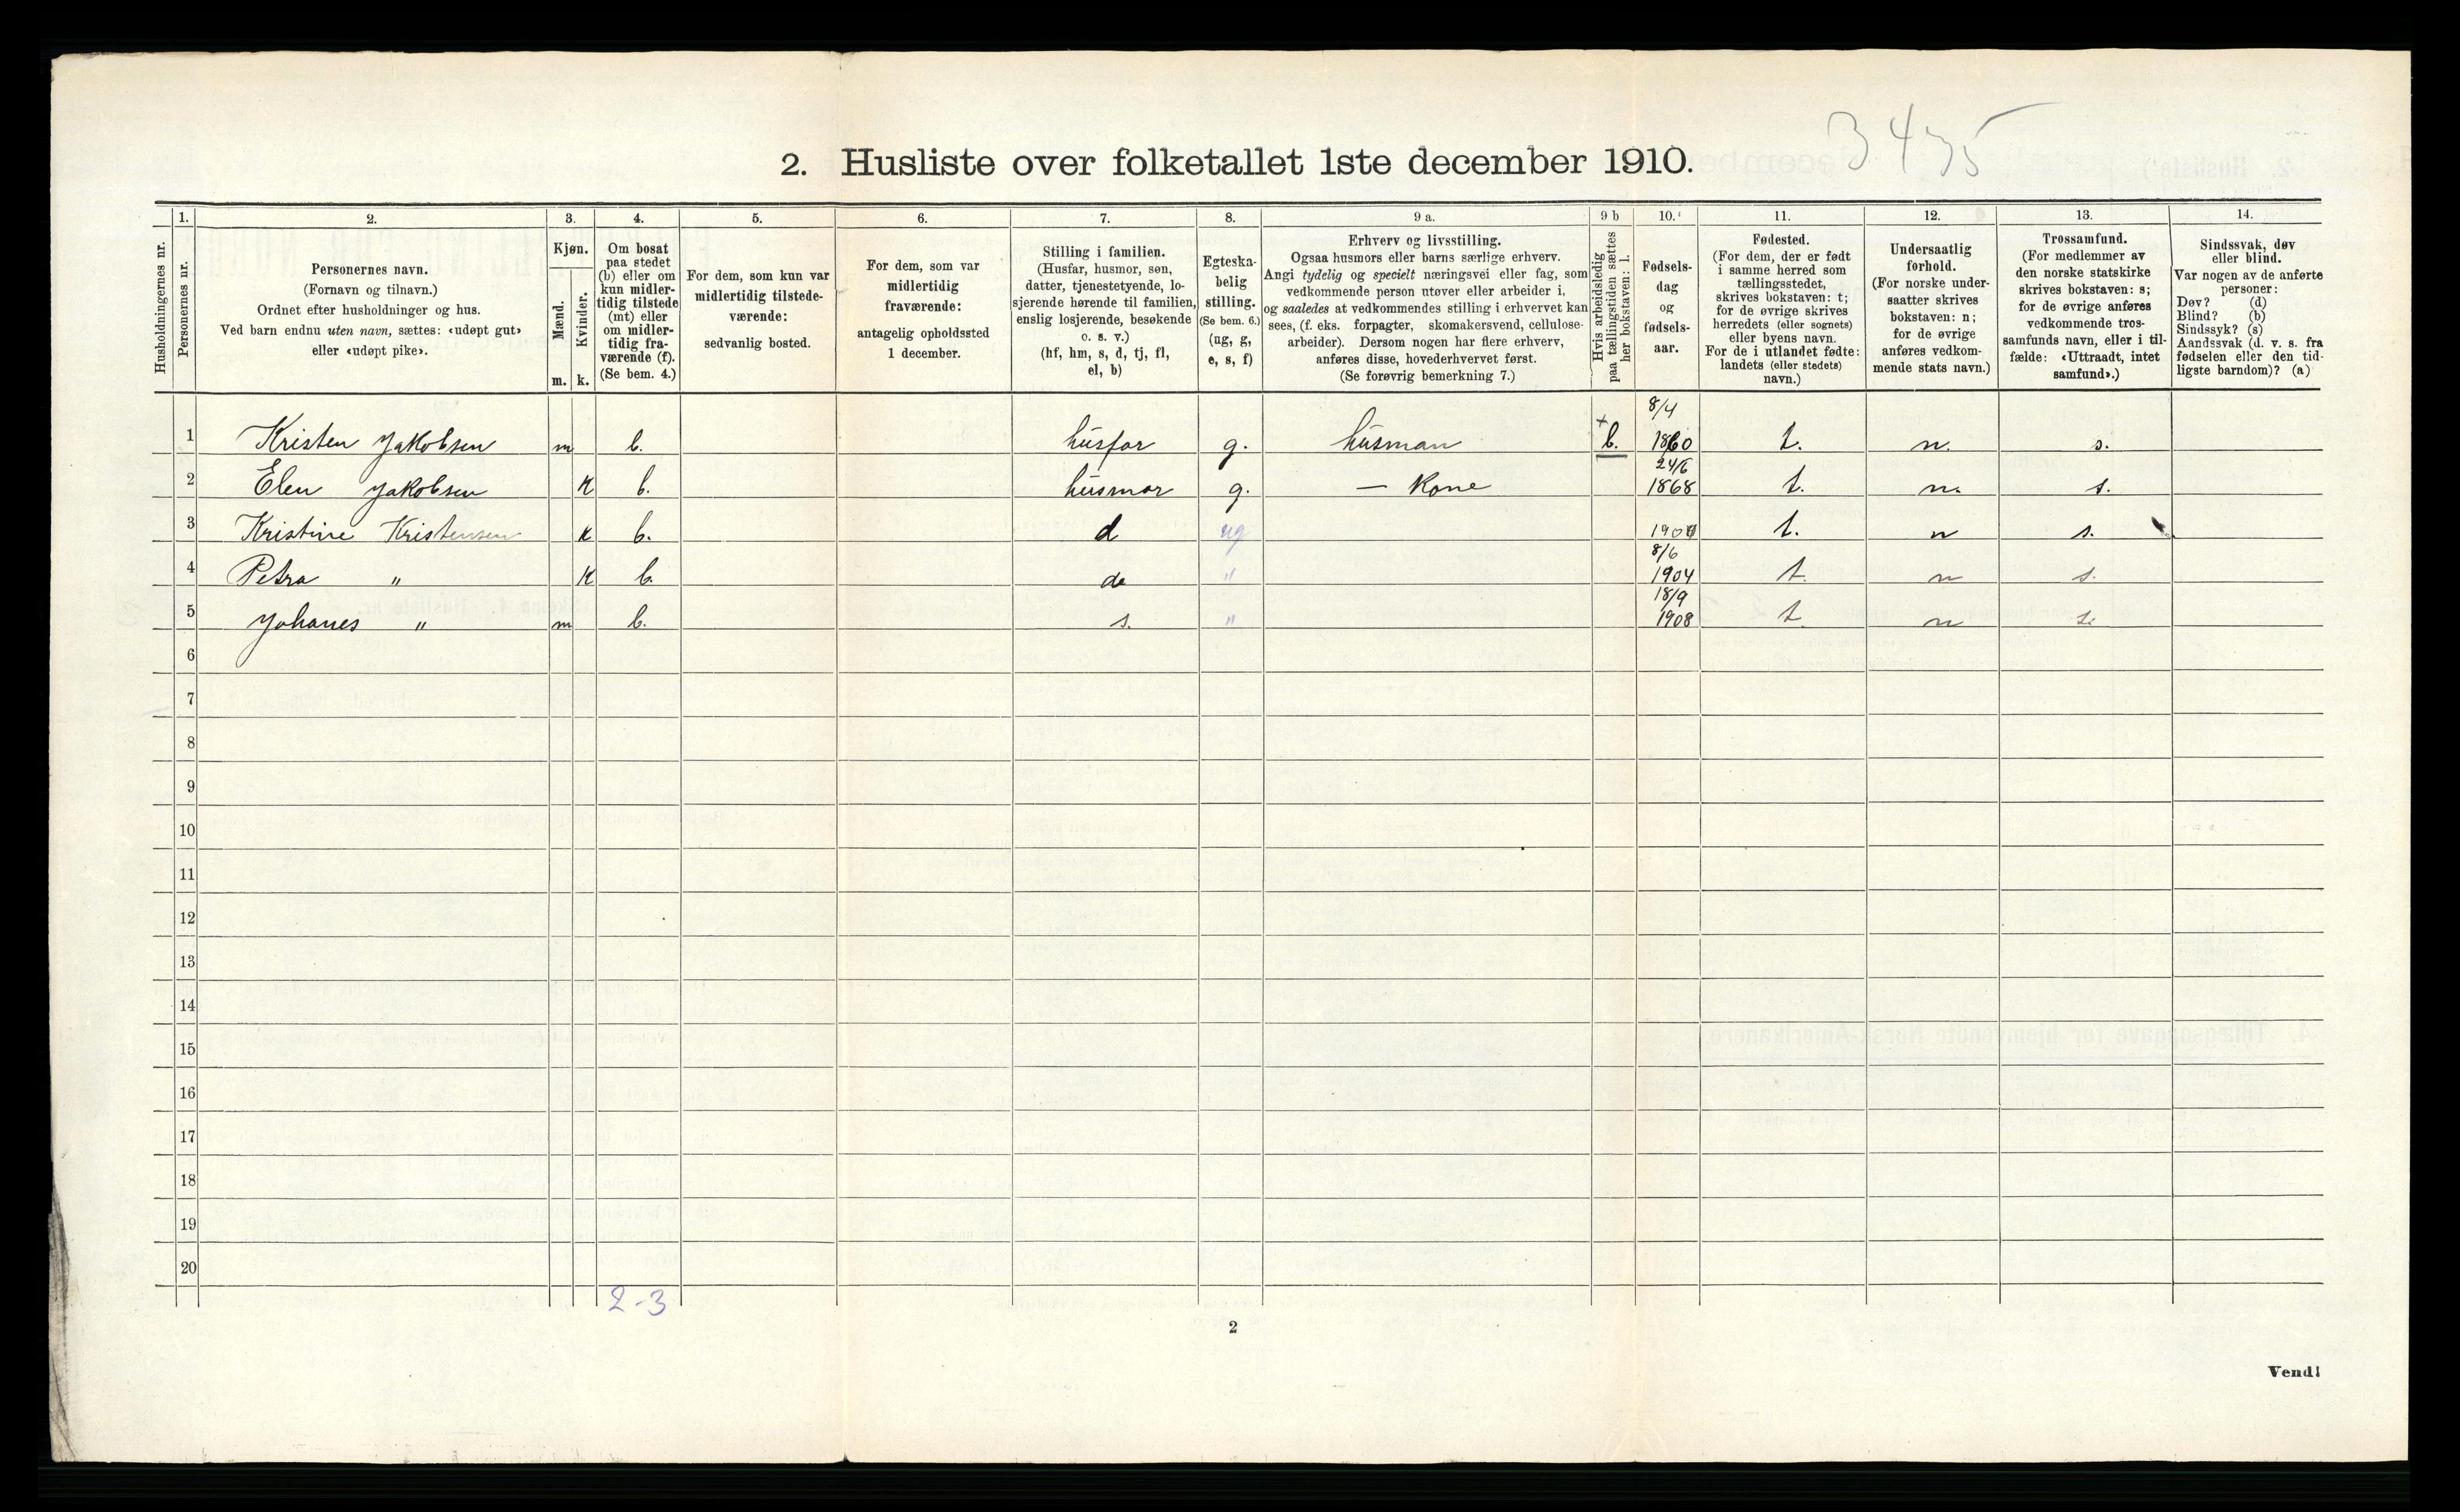 3475
2. Husliste over folketallet 1ste december 1910.
Husholdningernes nr.
1.
Personernes nr.
2.
Personernes navn.
(Fornavn og tilnavn.)
Ordnet efter husholdninger og hus.
Ved barn endnu uten navn, sættes: «udøpt gut»
eller «udøpt pike».
3.
Kjøn.
Mænd.
Kvinder.
m. k.
4.
Om bosat
paa stedet
(b) eller om
kun midler-
tidig tilstede
(mt) eller
om midler-
tidig fra-
værende (f).
(Se bem. 4.)
5.
For dem, som kun var
midlertidig tilstede-
værende:
sedvanlig bosted.
6.
For dem, som var
midlertidig
fraværende:
antagelig opholdssted
1 december.
7.
Stilling i familien.
(Husfar, husmor, søn,
datter, tjenestetyende, lo-
sjerende hørende til familien,
enslig losjerende, besøkende
o. s. v.)
(hf, hm, s, d, tj, fl,
el, b)
8.
Egteska-
belig
stilling.
(Se bem. 6.)
(ug, g,
e, s, f)
9 a.
Erhverv og livsstilling.
Ogsaa husmors eller barns særlige erhverv.
Angi tydelig og specielt næringsvei eller fag, som
vedkommende person utøver eller arbeider i,
og saaledes at vedkommendes stilling i erhvervet kan
sees, (f. eks. forpagter, skomakersvend, cellulose-
arbeider). Dersom nogen har flere erhverv,
anføres disse, hovederhvervet først.
(Se forøvrig bemerkning 7.)
9 b
Hvis arbeidsledig
paa tællingstiden sættes
her bokstaven: l.
10.
Fødsels-
dag
og
fødsels-
aar.
11.
Fødested.
(For dem, der er født
i samme herred som
tællingsstedet,
skrives bokstaven: t;
for de øvrige skrives
herredets (eller sognets)
eller byens navn.
For de i utlandet fødte:
landets (eller stedets)
navn.)
12.
Undersaatlig
forhold.
(For norske under-
saatter skrives
bokstaven: n;
for de øvrige
anføres vedkom-
mende stats navn.)
13.
Trossamfund.
(For medlemmer av
den norske statskirke
skrives bokstaven: s;
for de øvrige anføres
vedkommende tros-
samfunds navn, eller i til-
fælde: «Uttraadt, intet
samfund».)
14.
Sindssvak, døv
eller blind.
Var nogen av de anførte
personer:
Døv? (d)
Blind? (b)
Sindssyk? (s)
Aandssvak (d. v. s. fra
fødselen eller den tid-
ligste barndom)? (a)
8/4
1 Kristen Jakobsen m b. husfar g. husman + b. 1860 t. n. s.
24/6
2 Elen Jakobsen k b. husmor g. — Kone 1868 t. n. s.
3 Kristine Kristensen k b. d ug t. n s.
8/6
4 Petra " k b. do " 1904 t. n s.
18/9
5 Johanes " m b. s. " 1908 t. n s.
6
7
8
9
10
11
12
13
14
15
16
17
18
19
20
2-3
2
Vend!